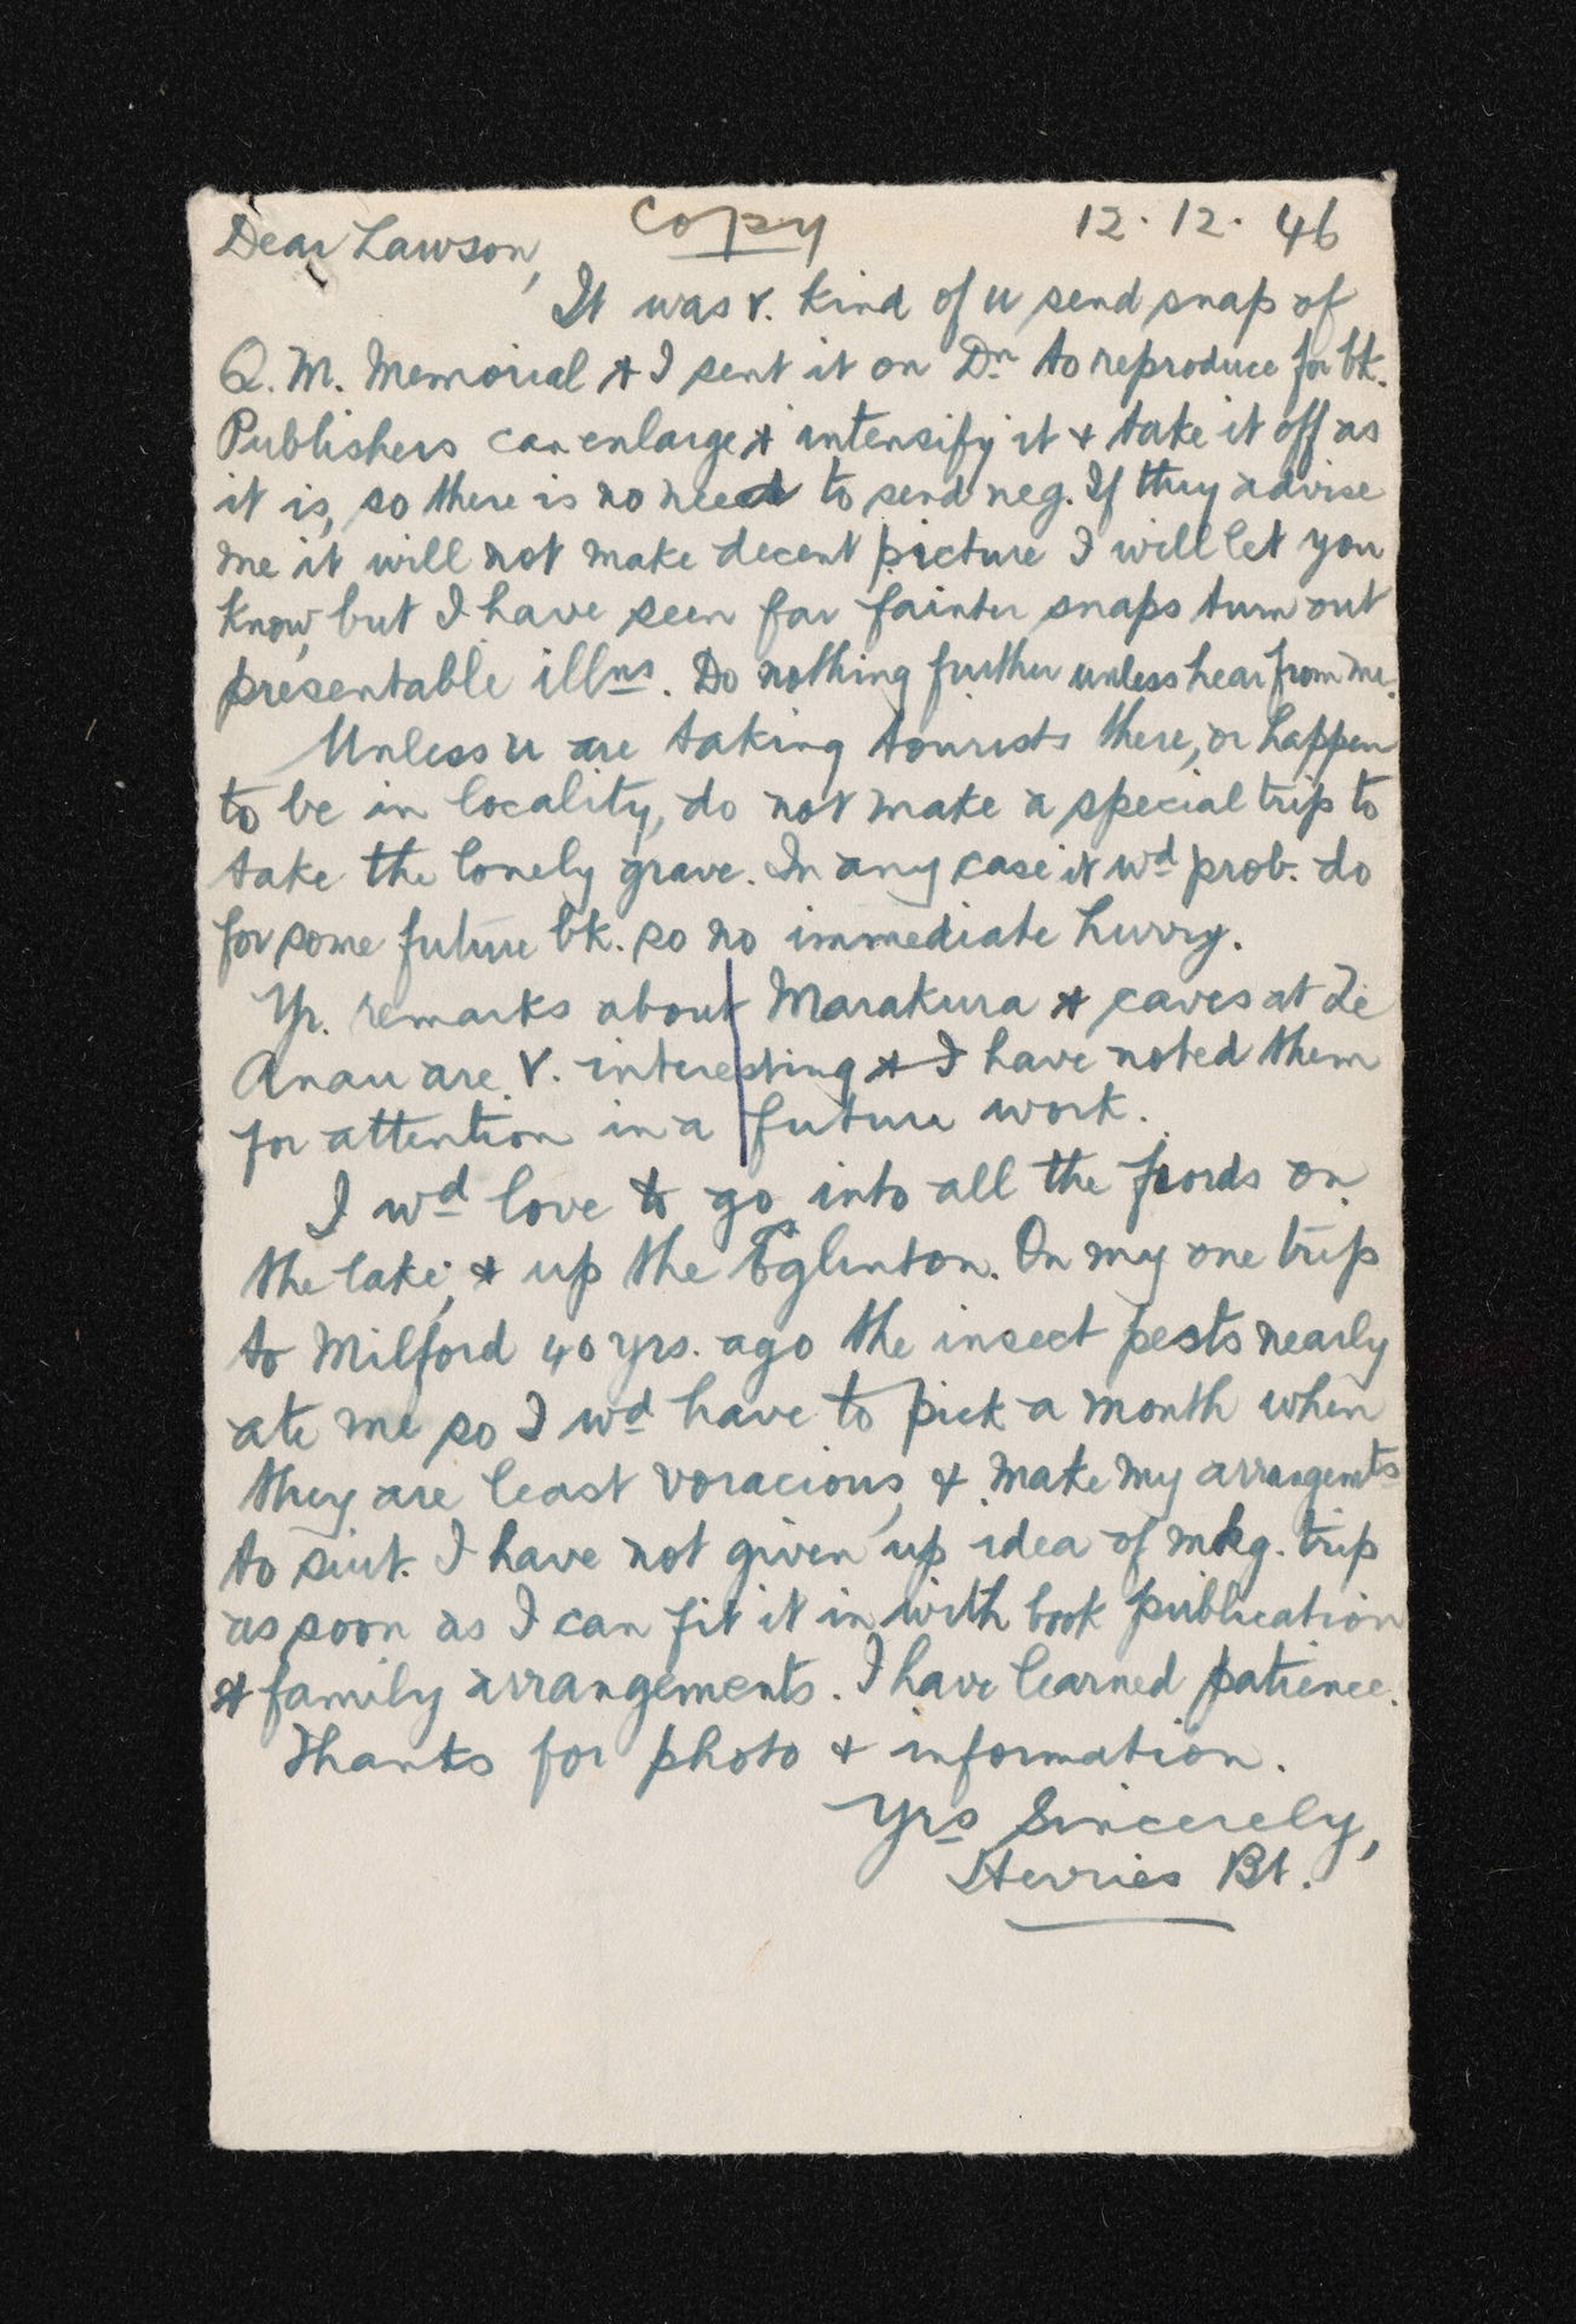 Copy 12.12.46
Dear Lawson,
It was v. kind of u send snap of
Q.M. Memorial & I sent it on Dn to reproduce for bk.
Publishers can enlarge & intensify it & take it off as
it is, so there is no need to send neg. If they advise
me it will not make decent picture I will let you
know, but I have seen far fainter snaps turn out
presentable illns. Do nothing further unless hear from me.
Unless u are taking tourists there, or happen
to be in locality, do not make a special trip to
take the lonely grave. In any case it wd prob. do
for some future bk. so no immediate hurry.
Yr. remarks about Marakura & caves at Te
Anau are v. interesting & I have noted them
for attention in a future work.
I wd love to go into all the fiords on
the lake, & up the Eglinton. On my one trip
to Milford 40 yrs. ago the insect pests nearly
ate me so I wd have to pick a month when
they are least voracious, & make my arrangemts
to suit. I have not given up idea of mkg. trip
as soon as I can fit it in with book publication
& family arrangements. I have learned patience.
Thanks for photo & information.
Yrs Sincerely,
Herries Bt.